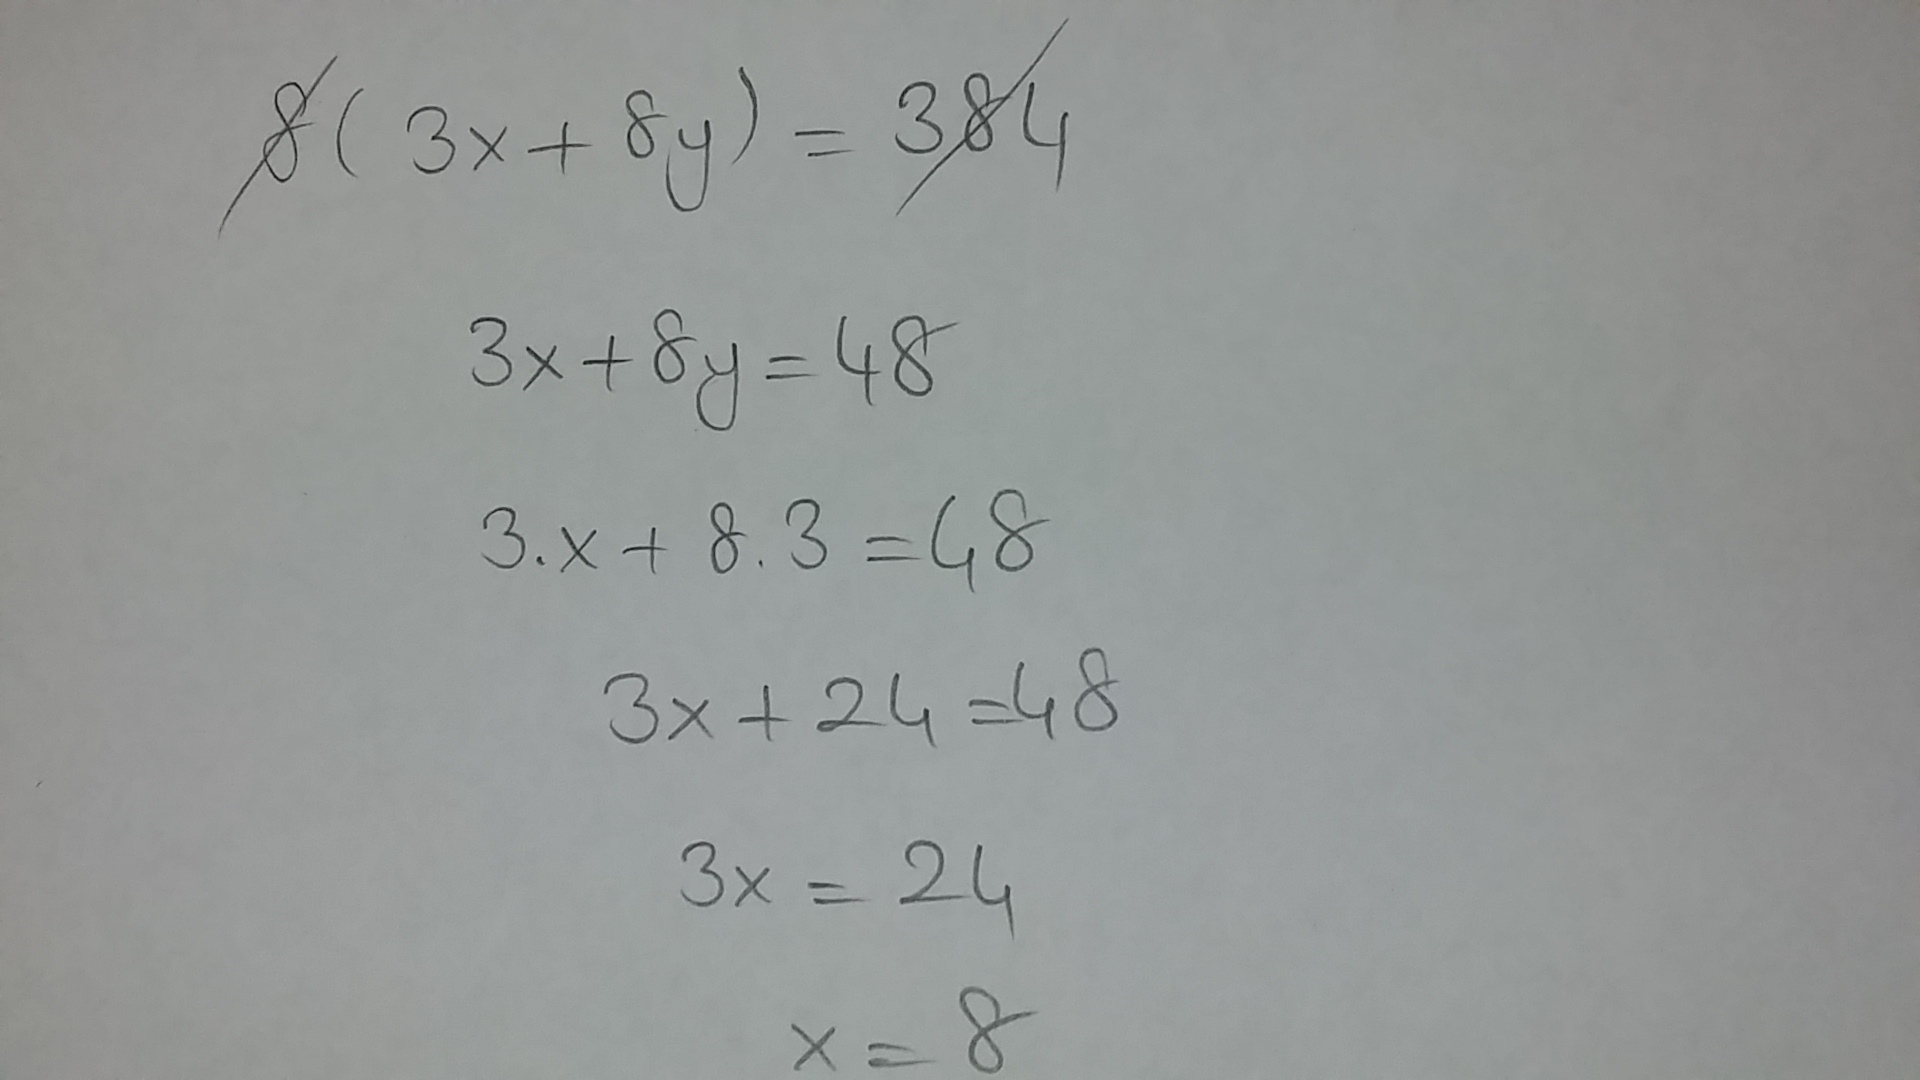 8(3x+8y)=384
3x+8y=48
3.x+8.3=48
3x+24=48
3x=24
x=8